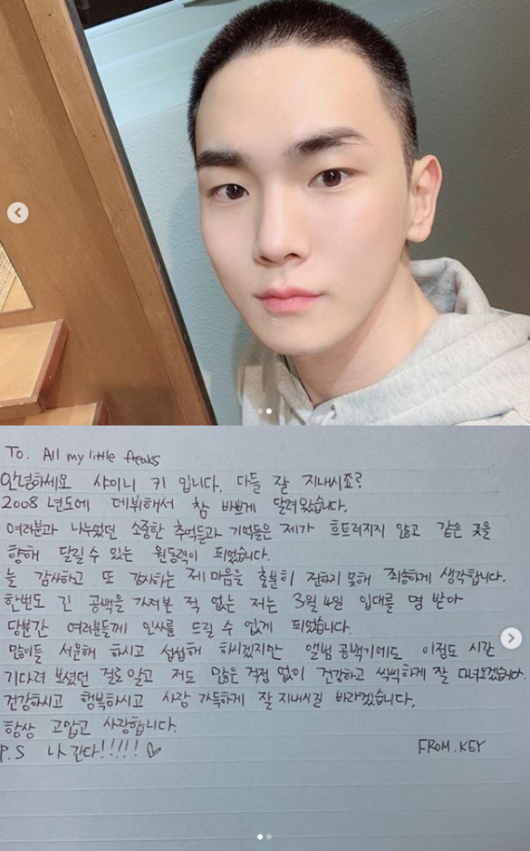 To. All my little freaks
안녕하세요 샤이니 키 입니다. 다들 잘 지내시죠?
2008 년도에 데뷔해서 참 바쁘게 달려왔습니다.
여러분과 나누었던 소중한 추억들과 기억들은 제가 흐트러지지 않고 같은 곳을
향해 달릴 수 있는 원동력이 되었습니다.
늘 감사하고 또 감사하는 제 마음을 충분히 전하지 못해 죄송하게 생각합니다.
한번도 긴 공백을 가져본 적 없는 저는 3월 4일 입대를 명 받아
당분간 여러분들께 인사를 드릴 수 없게 되었습니다.
많이들 서운해 하시고 섭섭해 하시겠지만 앨범 공백기에도 이정도 시간
기다려 보셨던 걸로 알고 저도 많은 걱정 없이 건강하고 씩씩하게 잘 다녀오겠습니다.
건강하시고 행복하시고 사랑 가득하게 잘 지내시길 바라겠습니다.
항상 고맙고 사랑합니다.
P.S 나 간다!!!!! ♡ FROM. KEY